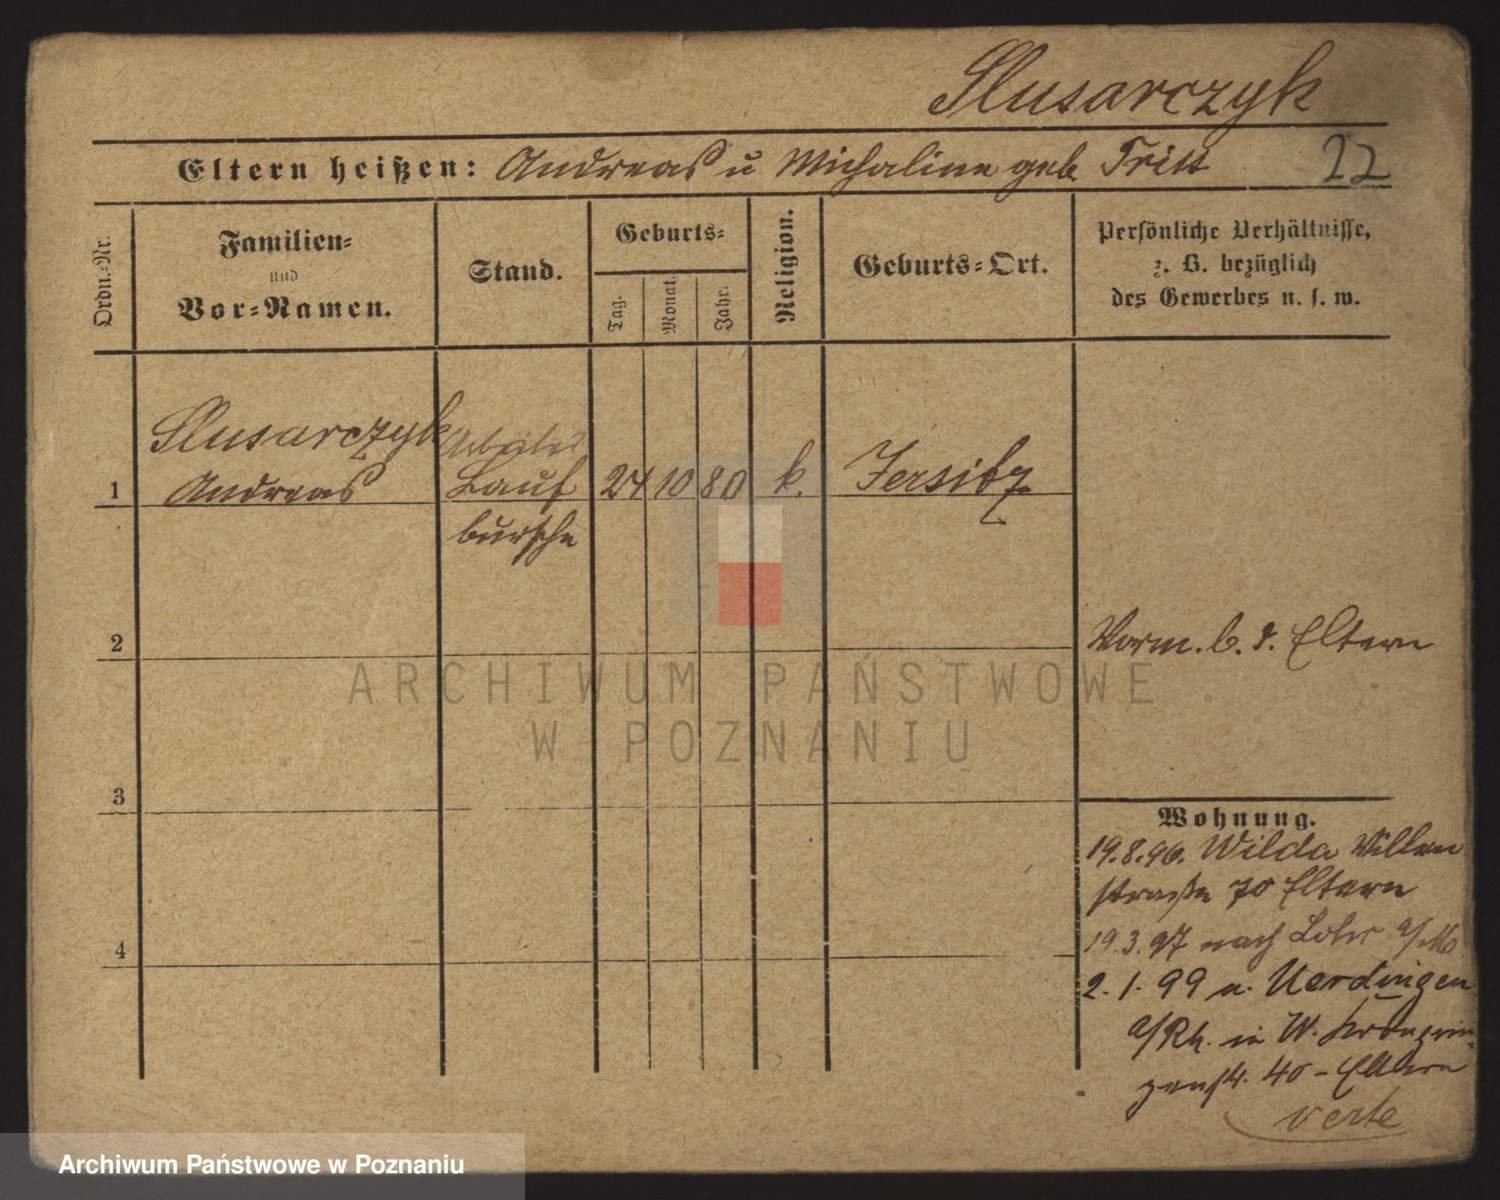 Slusarczyk
Eltern heißen: Andreas u Michaline geb Tritt
22
Ordn.-Nr.
Familien-
und
Vor-Namen.
Stand.
Geburts-
Tag.
Monat.
Jahr.
Religion.
Geburts-Ort.
Persönliche Verhältnisse,
z. B. bezüglich
des Gewerbes u. s. w.
Slusarczyk
Arbeiter
1 Andreas Lauf 24 10 80 k. Jersitz
bursche
2
Vorm. b. d. Eltern
3
Wohnung.
19.8.96. Wilda Villen
straße 70 Eltern
19.3.97 nach Lohr a/M
4
2.1.99 n. Uerdingen
a/Rh. in W. Kronprin
zenstr. 40 - Eltern
verte
ARCHIWUM PAŃSTWOWE
W POZNANIU
Archiwum Państwowe w Poznaniu